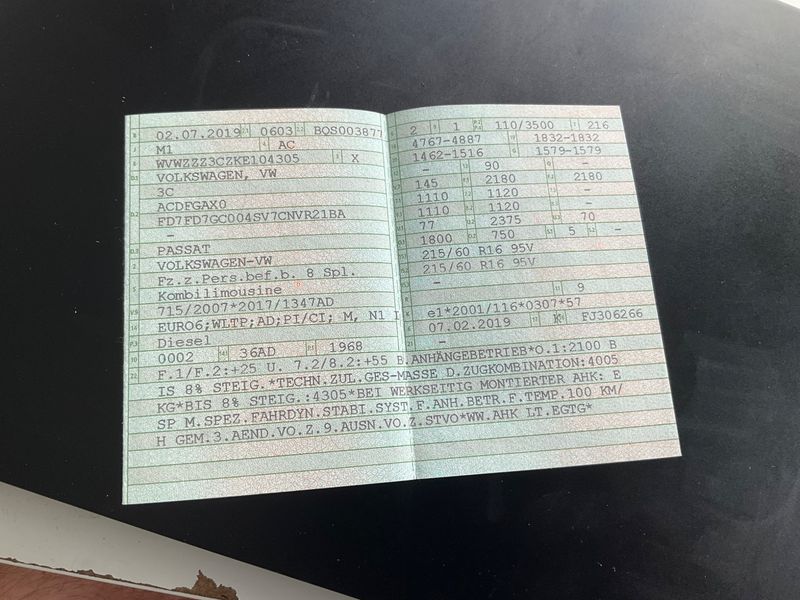 02.07.2019 0603 BQS003877
M1 AC
WVWZZZ3CZKE104305 X
VOLKSWAGEN, VW
3C
ACDFGAX0
FD7FD7GC004SV7CNVR21BA
-
PASSAT
VOLKSWAGEN-VW
Fz.z.Pers.bef.b. 8 Spl.
Kombilimousine
715/2007*2017/1347AD
EURO6;WLTP;AD;PI/CI; M, N1 I
Diesel
0002 36AD 1968
2 1 110/3500 216
4767-4887 1832-1832
1462-1516 1579-1579
- 90 -
145 2180 2180
1110 1120 -
1110 1120 -
77 2375 70
1800 750 5 -
215/60 R16 95V
215/60 R16 95V
-
9
e1*2001/116*0307*57
07.02.2019 K FJ306266
-
F.1/F.2:+25 U. 7.2/8.2:+55 B.ANHÄNGEBETRIEB*O.1:2100 B
IS 8% STEIG.*TECHN.ZUL.GES-MASSE D.ZUGKOMBINATION:4005
KG*BIS 8% STEIG.:4305*BEI WERKSEITIG MONTIERTER AHK: E
SP M.SPEZ.FAHRDYN.STABI.SYST.F.ANH.BETR.F.TEMP.100 KM/
H GEM.3.AEND.VO.Z.9.AUSN.VO.Z.STVO*WW.AHK LT.EGTG*